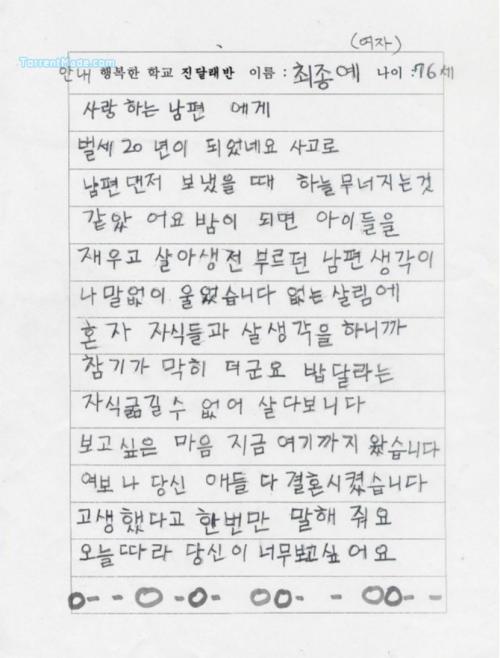 (여자)
TorrentMade.com
안내 행복한 학교 진달래반 이름 : 최종예 나이 : 76 세
사랑 하는 남편 에게
벌세 20 년이 되었네요 사고로
남편 댄저 보냈을 때 하늘 무너지는것
같았 어요 밤이 되면 아이들을
재우고 살아생전 부르던 남편 생각이
나 말없이 울었습니다 없는 살림에
혼 자 자식들과 살생각을 하니까
참기가 막히 더군요 밥달라는
자식굶길수 없어 살다보니다
보고싶은 마음 지금 여기까지 왔습니다
여보 나 당신 애들 다 결혼시켰습니다
고생했다고 한번만 말해 줘요
오늘따라 당신이 너무보고싶어요